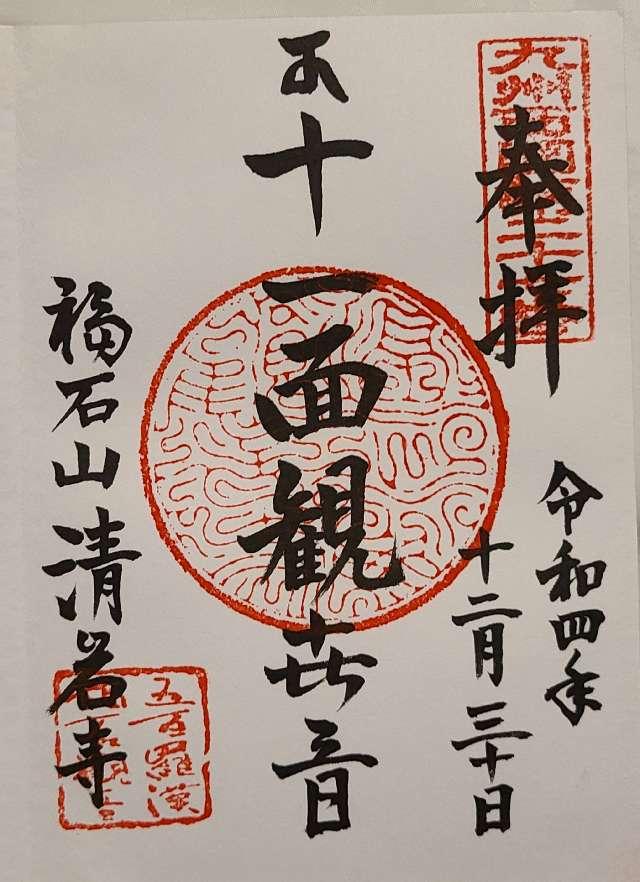 九州西国第二十
奉拝
令和四年
十二月三十日
十一面観世音
福石山清岩寺
五百羅漢